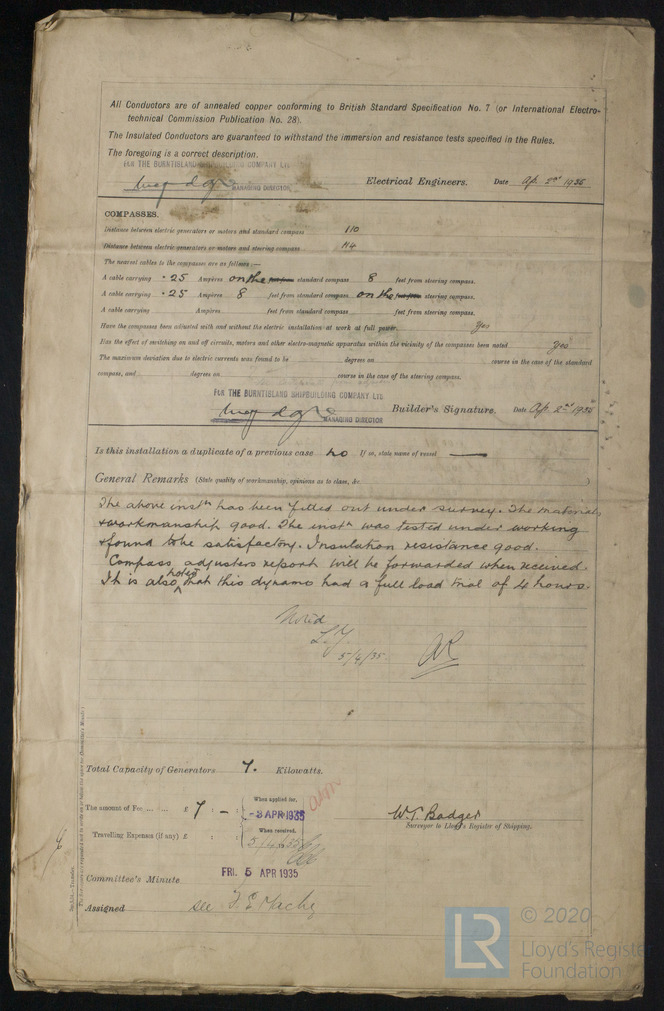 All Conductors are of annealed copper conforming to British Standard Specification No. 7 (or International Electro-
technical Commission Publication No. 28).
The Insulated Conductors are guaranteed to withstand the immersion and resistance tests specified in the Rules.
The foregoing is a correct description.
FOR THE BURNTISLAND SHIPBUILDING COMPANY LTD
MANAGING DIRECTOR Electrical Engineers. Date Ap. 2nd 1935
COMPASSES.
Distance between electric generators or motors and standard compass 110
Distance between electric generators or motors and steering compass 114
The nearest cables to the compasses are as follows:—
A cable carrying .25 Ampères on the standard compass 8 feet from steering compass.
A cable carrying .25 Ampères 8 feet from standard compass on the steering compass.
A cable carrying Ampères feet from standard compass feet from steering compass.
Have the compasses been adjusted with and without the electric installation at work at full power Yes
Has the effect of switching on and off circuits, motors and other electro-magnetic apparatus within the vicinity of the compasses been noted Yes
The maximum deviation due to electric currents was found to be degrees on course in the case of the standard
compass, and degrees on course in the case of the steering compass.
FOR THE BURNTISLAND SHIPBUILDING COMPANY LTD
MANAGING DIRECTOR Builder's Signature. Date Ap. 2nd 1935
Is this installation a duplicate of a previous case no If so, state name of vessel —
General Remarks (State quality of workmanship, opinions as to class, &c.)
The above instn has been fitted out under survey. The materials
& workmanship good. The instn was tested under working
& found to be satisfactory. Insulation resistance good.
Compass adjusters report will be forwarded when received.
It is also noted that this dynamo had a full load trial of 4 hours.
Noted
L.Y.
5/4/35 AR
Total Capacity of Generators 7. Kilowatts.
The amount of Fee ... ... £ 7 : - : When applied for, -3 APR 1935
Travelling Expenses (if any) £ : : When received,
W.T. Badger
Surveyor to Lloyd's Register of Shipping.
Committee's Minute FRI. 5 APR 1935
Assigned see
© 2020
LR Lloyd's Register
Foundation